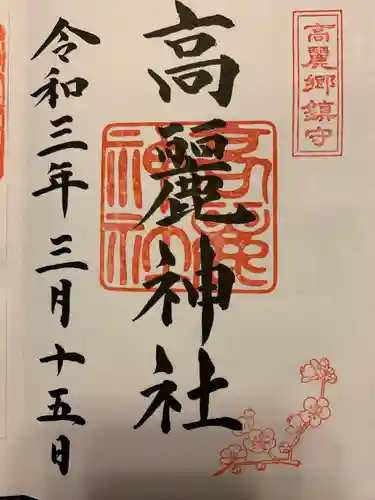 高麗郷鎮守
高麗神社
高麗神社
令和三年三月十五日